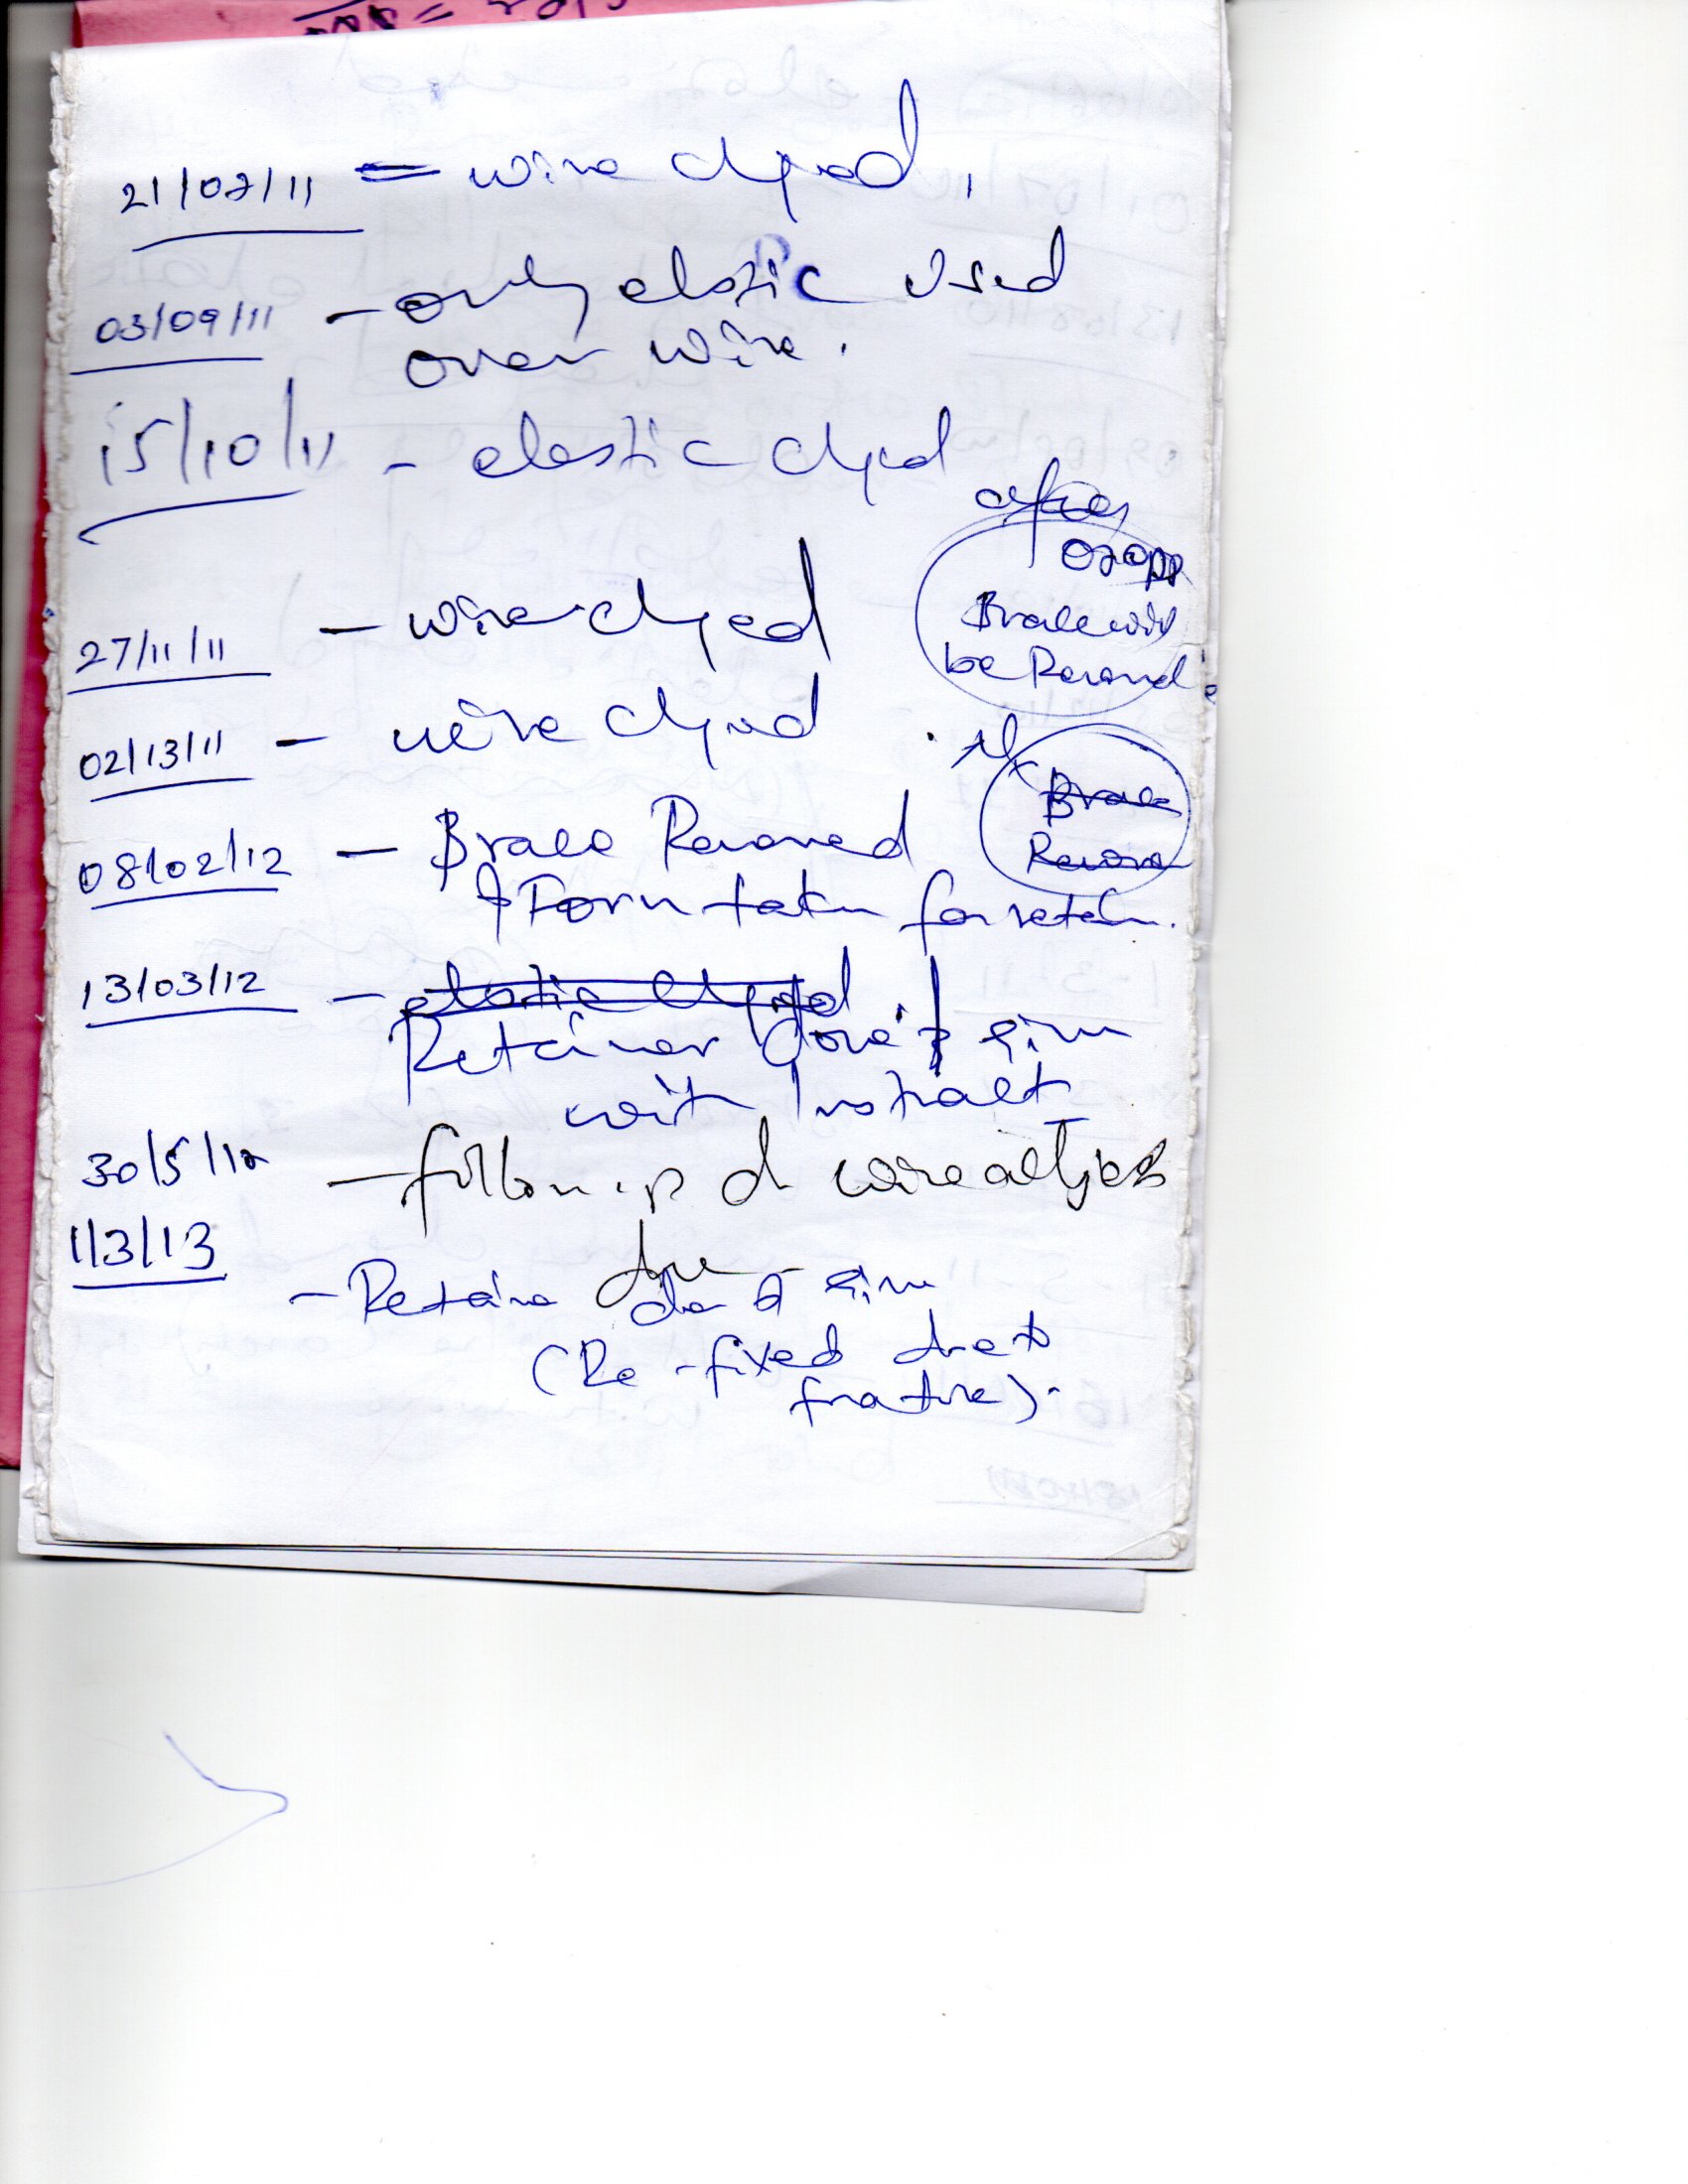 21/07/11 = wire chged
03/09/11 - only elastic used
over wire.
15/10/11 - elastic chged
after
02 app
Brace will
be Removed.
27/11/11 - wire chged
02/13/11 - wire chged
Brace
Remove
08/02/12 - Brace Removed
& Form taken for retain.
13/03/12 - elastic chged.
Retainer done & givn
with Instract
30/5/12 - follow up d wire
1/3/13
- Retaine don & givn
(Re-fixed due to
frature).